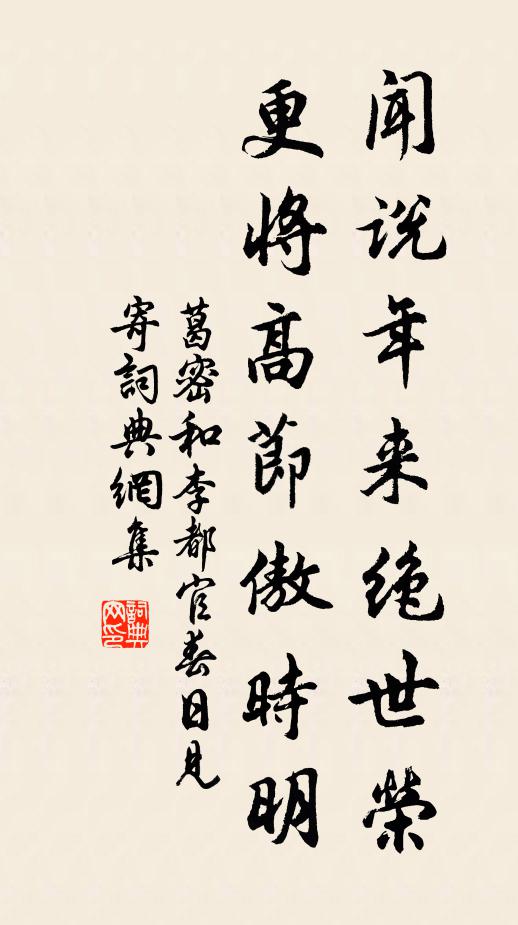 闻说年来绝世荣
更将高节傲时明
葛密和李都官春日見
寄詞典網集
詞典网印